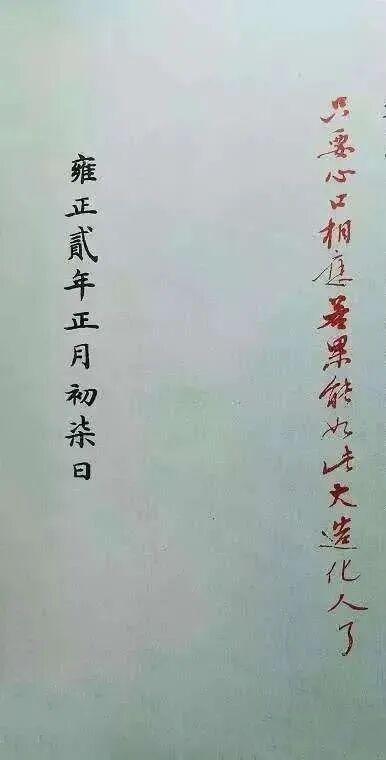 只要心口相應若果能如此大造化人了
雍正貳年正月初柒日